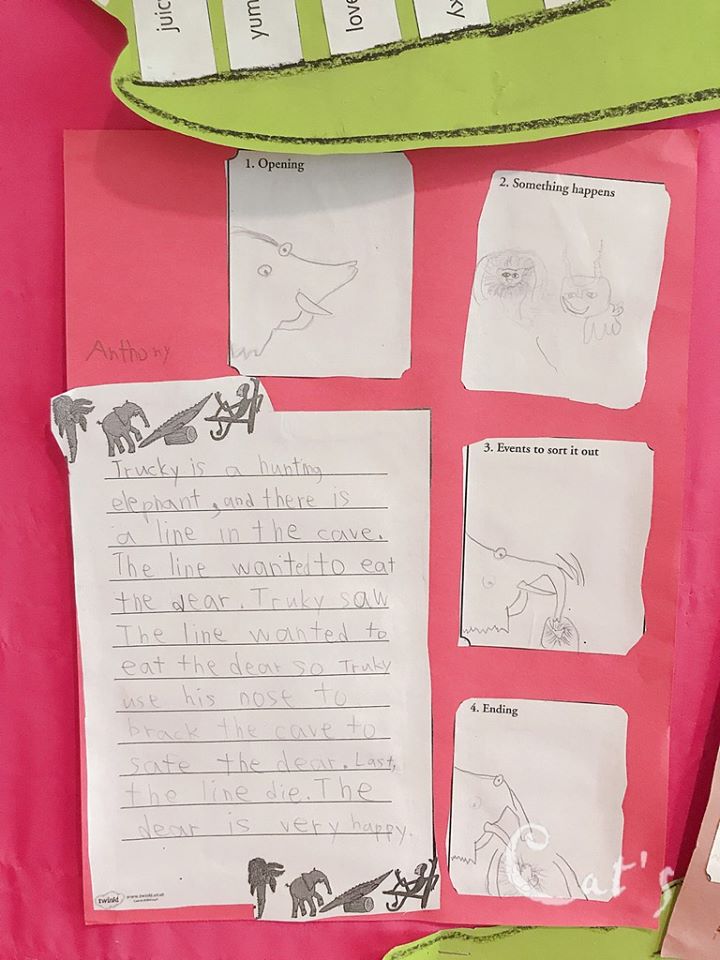 juic
yum
love
ky
1. Opening
2. Something happens
Anthony
Trucky is a hunting
elephant, and there is
a line in the cave.
The line wanted to eat
the dear. Truky saw
The line wanted to
eat the dear so Truky
use his nose to
brack the cave to
safe the dear. Last,
the line die. The
dear is very happy.
3. Events to sort it out
4. Ending
twinkl
Cat's